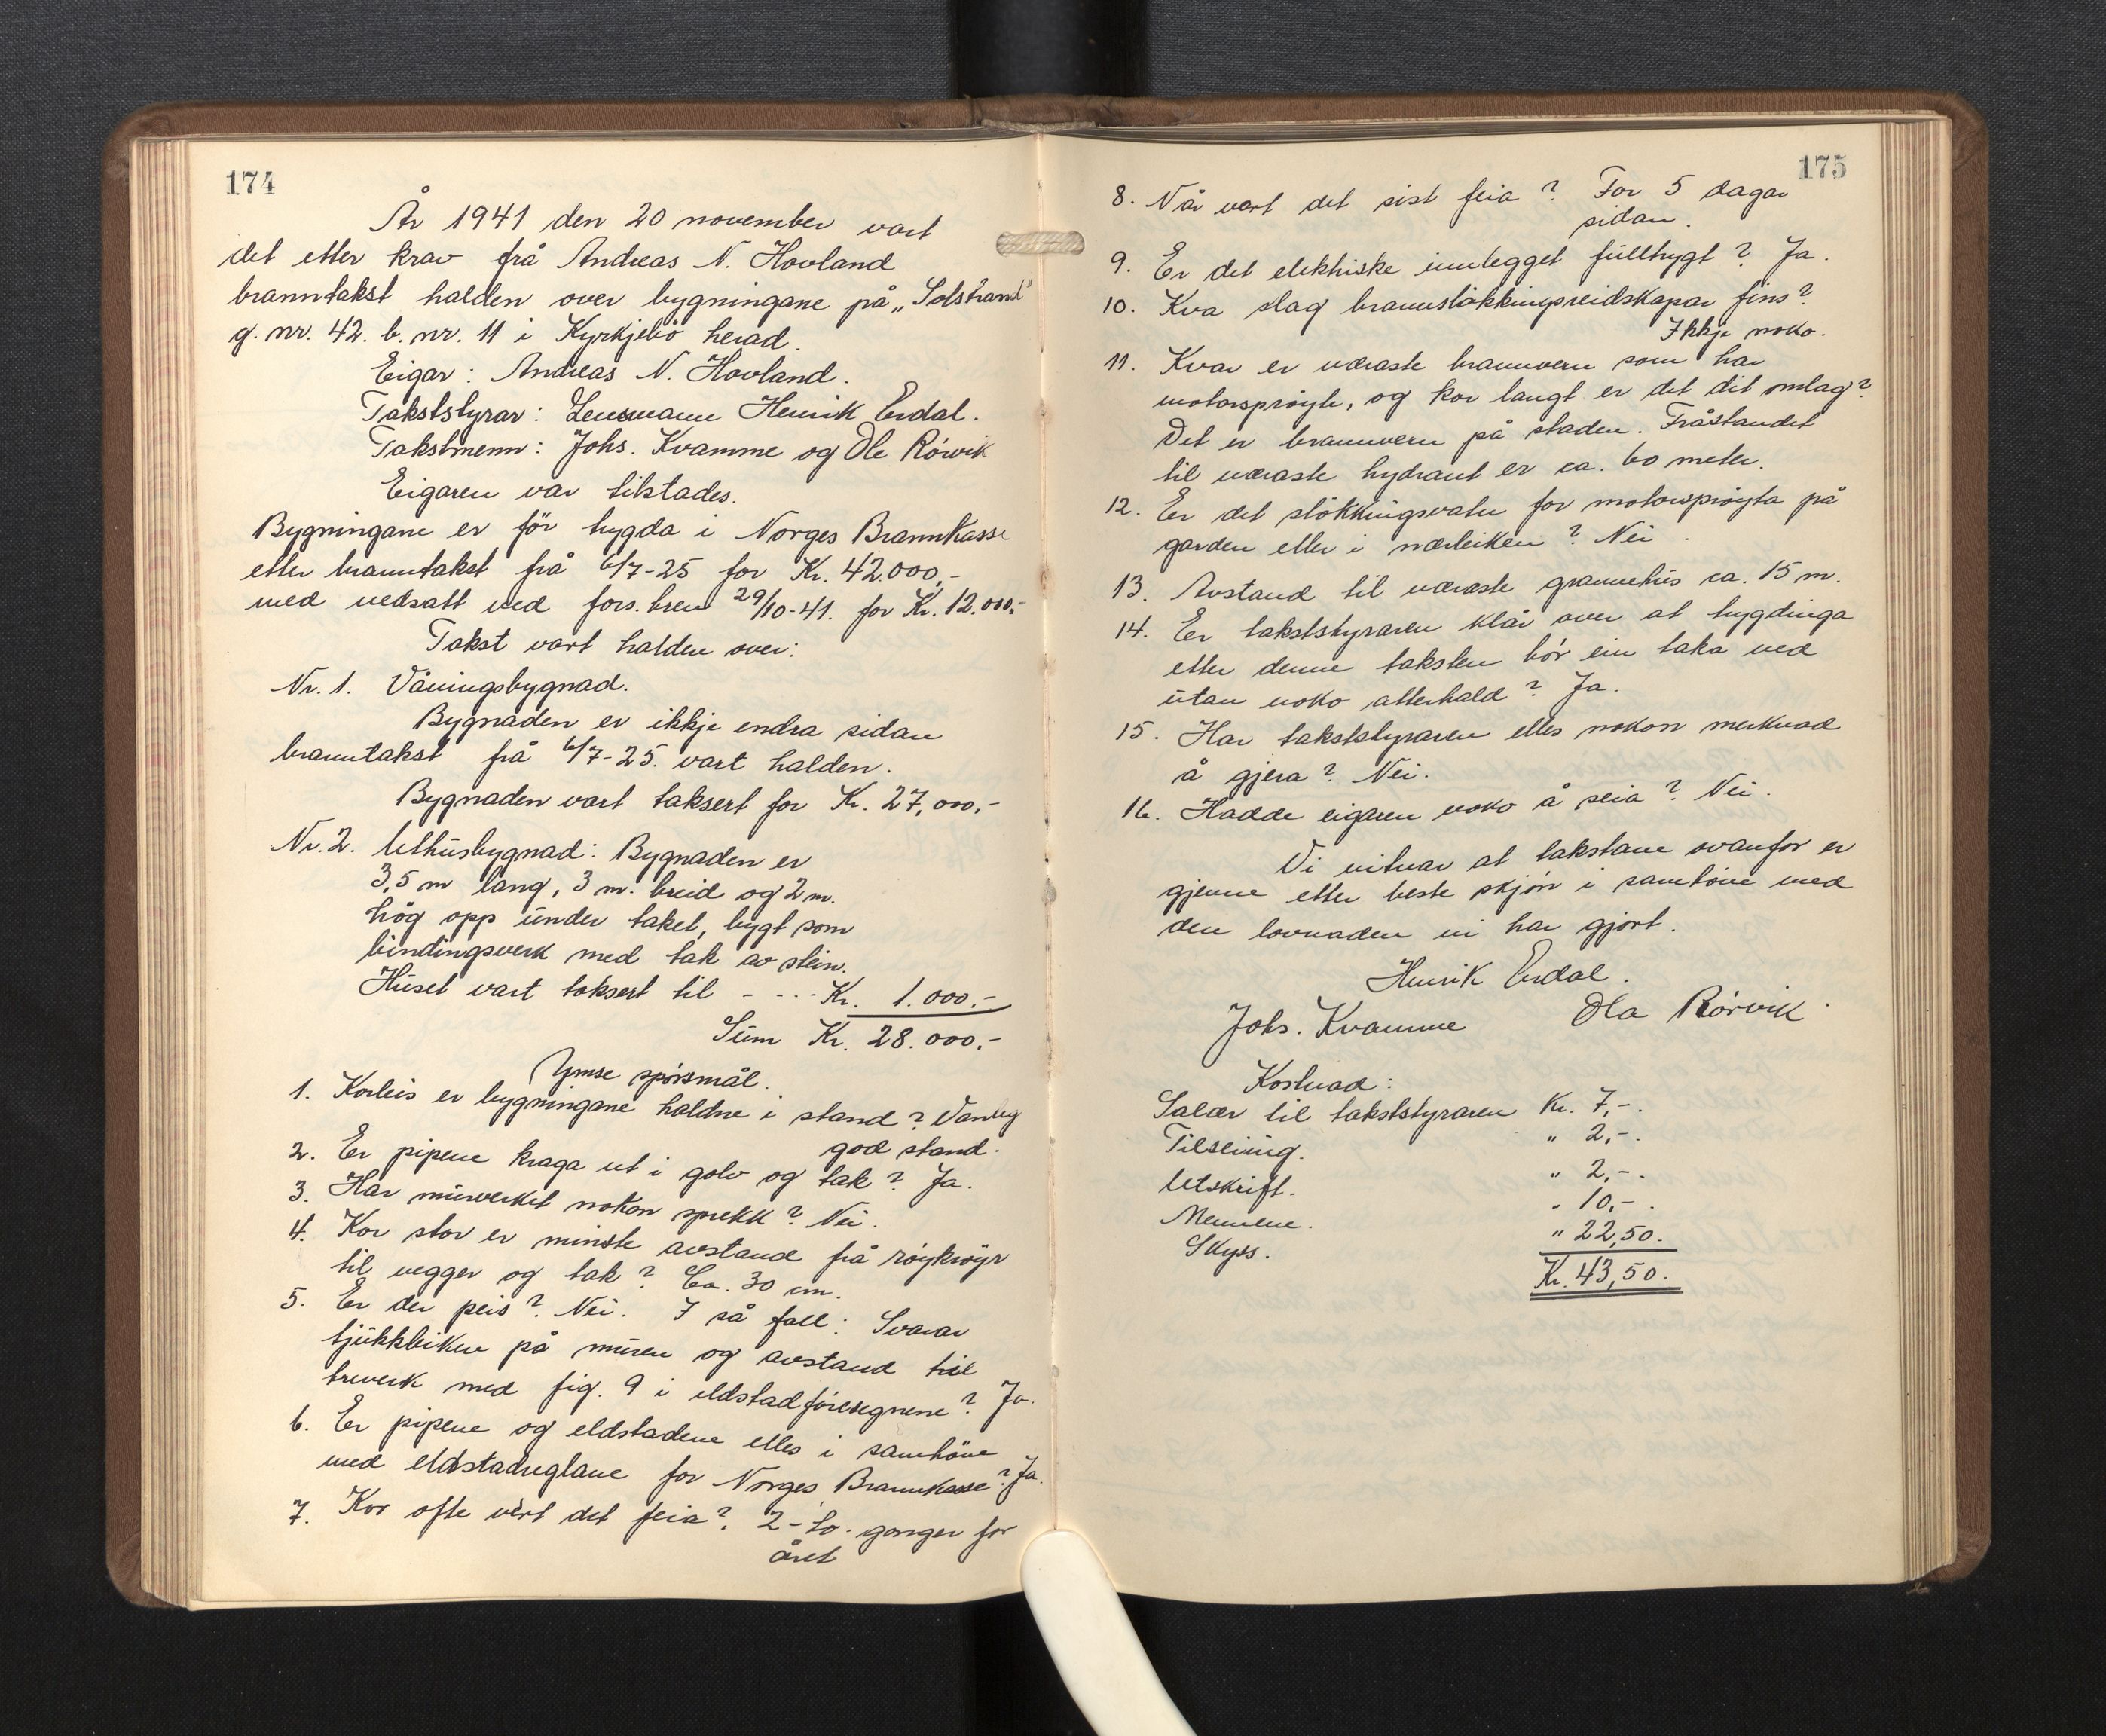 174
År 1941 den 20 november vart
det etter krav frå Andreas N. Hovland
branntakst halden over bygningane på „Solstrand"
g. nr. 42. b. nr. 11 i Kyrkjebö herad.
Eigar: Andreas N. Hovland.
Takststyrar: Lensmann Henrik Erdal.
Takstmenn: Johs. Kvamme og Ole Rörvik
Eigaren var tilstades.
Bygningane er för trygda i Norges Brannkasse
etter branntakst frå 6/7-25 for Kr. 42.000,-
med nedsatt ved fors. brev 29/10-41. for Kr. 12.000,-
Takst vart halden over:
Nr. 1. Våningsbygnad.
Bygnaden er ikkje endra sidan
branntakst frå 6/7-25. vart halden.
Bygnaden vart taksert for Kr. 27,000,-
Nr. 2. Uthusbygnad: Bygnaden er
3,5 m lang, 3 m. breid og 2 m.
hög opp under taket, bygt som
bindingsverk med tak av stein.
Huset vart taksert til - - - - Kr. 1.000.-
Sum Kr. 28.000.-
Ymse spörsmål.
1. Korleis er bygningane haldne i stand? Vanleg
god stand.
2. Er pipene kraga ut i golv og tak? Ja.
3. Har murverket nokon sprekk? Nei.
4. Kor stor er minste avstand frå röykröyr
til vegger og tak? Ca. 30 cm.
5. Er der peis? Nei. I så fall: Svarar
tjukkleiken på muren og avstand til
treverk med fig. 9 i eldstadföresegnene? Ja.
6. Er pipene og eldstadene elles i samhöve
med eldstadreglane for Norges Brannkasse? Ja.
7. Kor ofte vert det feia? 2-to- gonger for
året
175
8. Når vart det sist feia? For 5 dagar
sidan.
9. Er det elektriske innlegget fulltrygt? Ja.
10. Kva slag brannslökkingsreidskapar fins?
Ikkje noko.
11. Kvar er næraste brannvern som har
motorspröyte, og kor langt er det dit omlag?
Det er brannvern på staden. Fråstandet
til næraste hydrant er ca. 60 meter.
12. Er det slökkingsvatn for motorspröyta på
garden eller i nærleiken? Nei.
13. Avstand til næraste grannehus ca. 15 m.
14. Er takststyraren klår over at trygdinga
etter denne taksten bör ein taka ved
utan noko atterhald? Ja.
15. Har takststyraren elles nokon merknad
å gjera? Nei.
16. Hadde eigaren noko å seia? Nei.
Vi vitnar at takstane ovanfor er
gjevne etter beste skjön i samhöve med
den lovnaden vi har gjort.
Henrik Erdal.
Johs. Kvamme Ola Rörvik.
Kostnad:
Salær til takststyraren Kr. 7,-.
Tilseiing. " 2,-.
Utskrift. " 2,-.
Mennene. " 10,-.
Skyss. " 22,50.
Kr. 43,50.